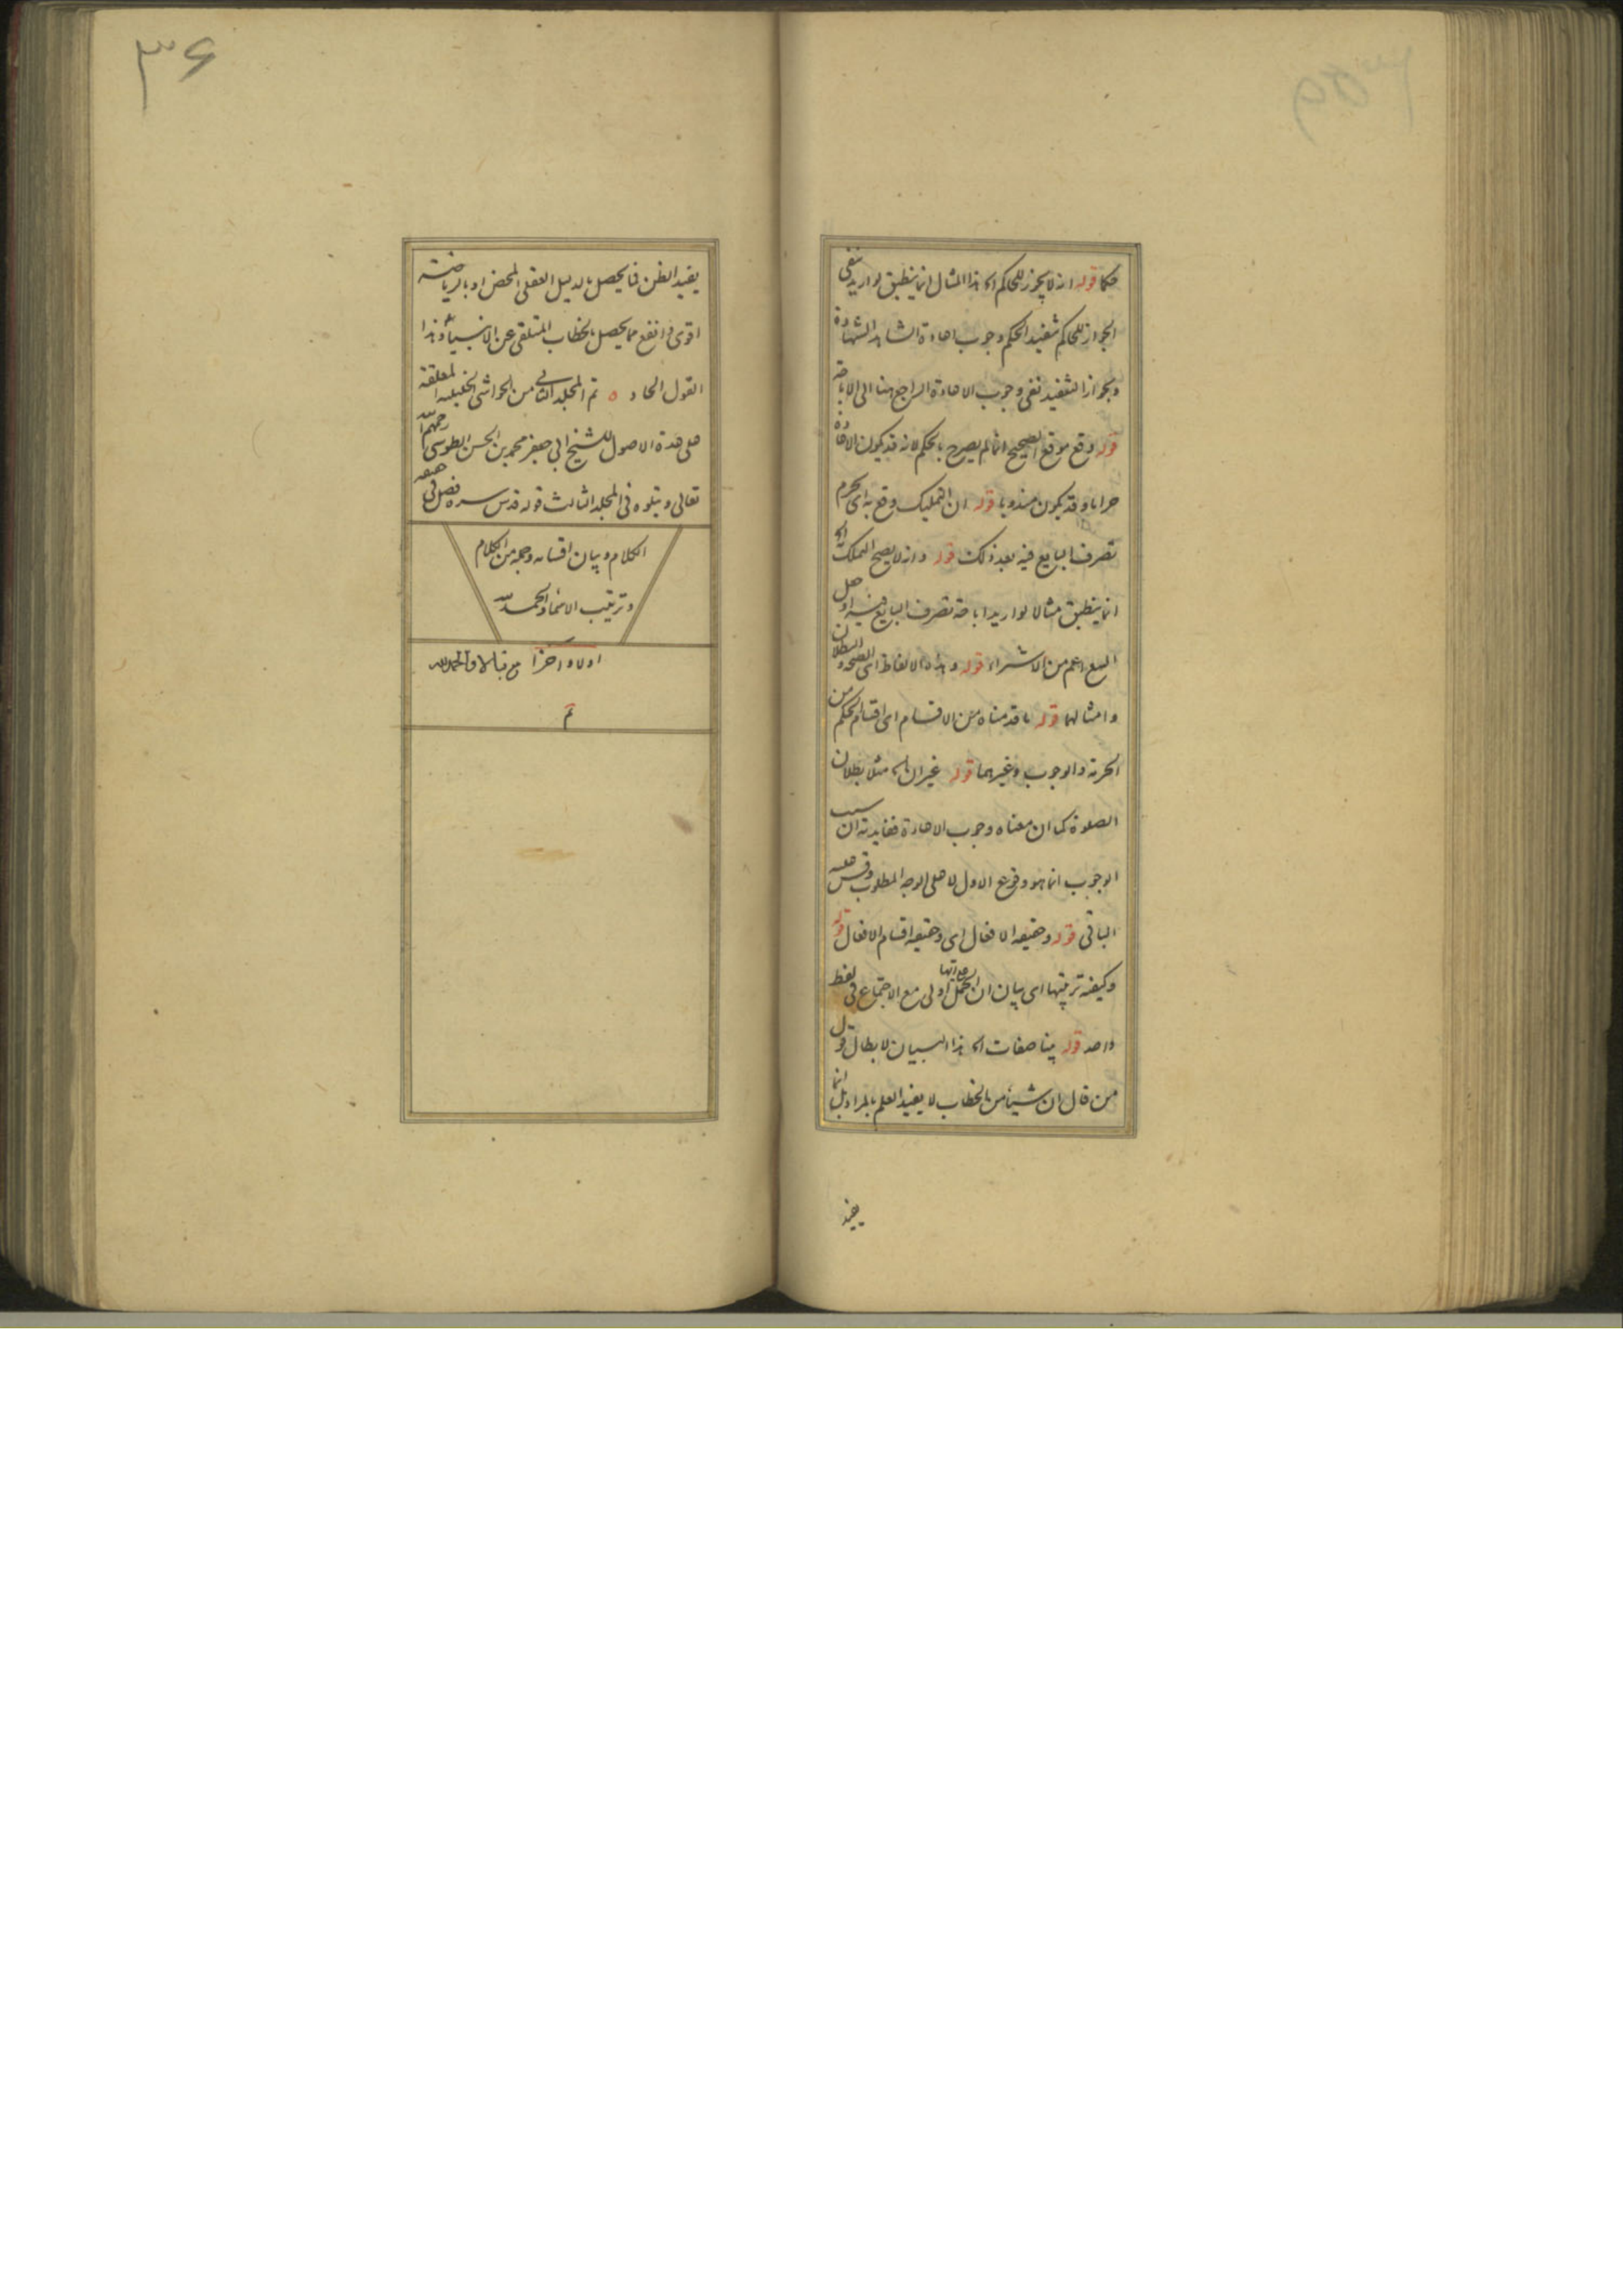 حكما قوله انه لا يجوز للحاكم الخ هذا المثال انما ينطبق لو اريد نفى
الجواز للحاكم تنفيذ الحكم وجوب اعادة الشاهد الشهادة
وبجواز التنفيذ نفى وجوب الاعادة الراجع هنا الى الاباحة
قوله وقع موقع الصحيح انما لم يصرح بالحكم لانه قد يكون الاعادة
حراما وقد يكون مندوبا قوله ان التمليك وقع به اى يحرم
تصرف البايع فيه بعد ذلك قوله وانه لا يصح التملك به الخ
انما ينطبق مثالا لو اريد اباحة تصرف البايع فيه او
البيع اعم من الاشتراء قوله وهذه الالفاظ اى الصحة والبطلان
وامثالهما قوله ما قدمناه من الاقسام اى اقسام الحكم من
الحرمة والوجوب وغيرهما قوله غير ان الخ مثلا بطلان
الصلوة كما ان معناه وجوب الاعادة ففايدته ان سبب
الوجوب انما هو وقوع الاول لا على الوجه المطلوب وقس عليه
الباقى قوله وحقيقة الافعال اى وحقيقة اقسام الافعال قوله
وكيفية ترتيبها اى بيان ان الجمل اولى مع الاجتماع فى لفظ
واحد قوله بينا صفات الخ هذا البيان لابطال قول
من قال ان شيئا من الخطاب لا يفيد العلم بالمراد بل انما
يفيد
٣٦
يفيد الظن فما يحصل بالدليل العقلى المحض او بالرياضته
اقوى وانفع مما يحصل بالخطاب المتلقى عن الانبياء وهذا
القول الحاد ه تم المجلد الثانى من الحواشى الخليلية المعلقة
على عدة الاصول للشيخ ابى جعفر محمد بن الحسن الطوسى رحمهم الله
تعالى ويتلوه فى المجلد الثالث قوله قدس سره فصل فى حقيقة
الكلام وبيان اقسامه وجملة من احكام
وترتيب الاسماء والحمد لله
اولا واخرا والحمد لله
تم